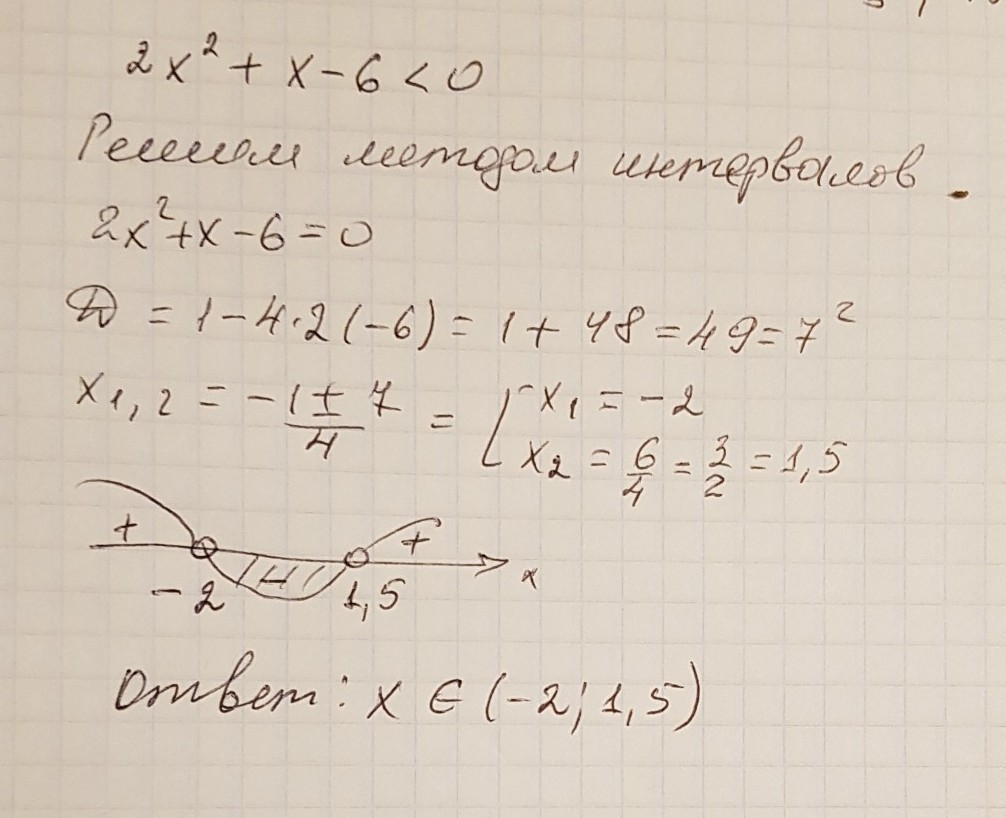 2x² + x - 6 < 0
Решаем методом интервалов.
2x² + x - 6 = 0
D = 1 - 4·2(-6) = 1 + 48 = 49 = 7²
x₁,₂ = (-1 ± 7)/4 = [x₁ = -2
x₂ = 6/4 = 3/2 = 1,5
+ - + x
-2 1,5
Ответ: x ∈ (-2; 1,5)